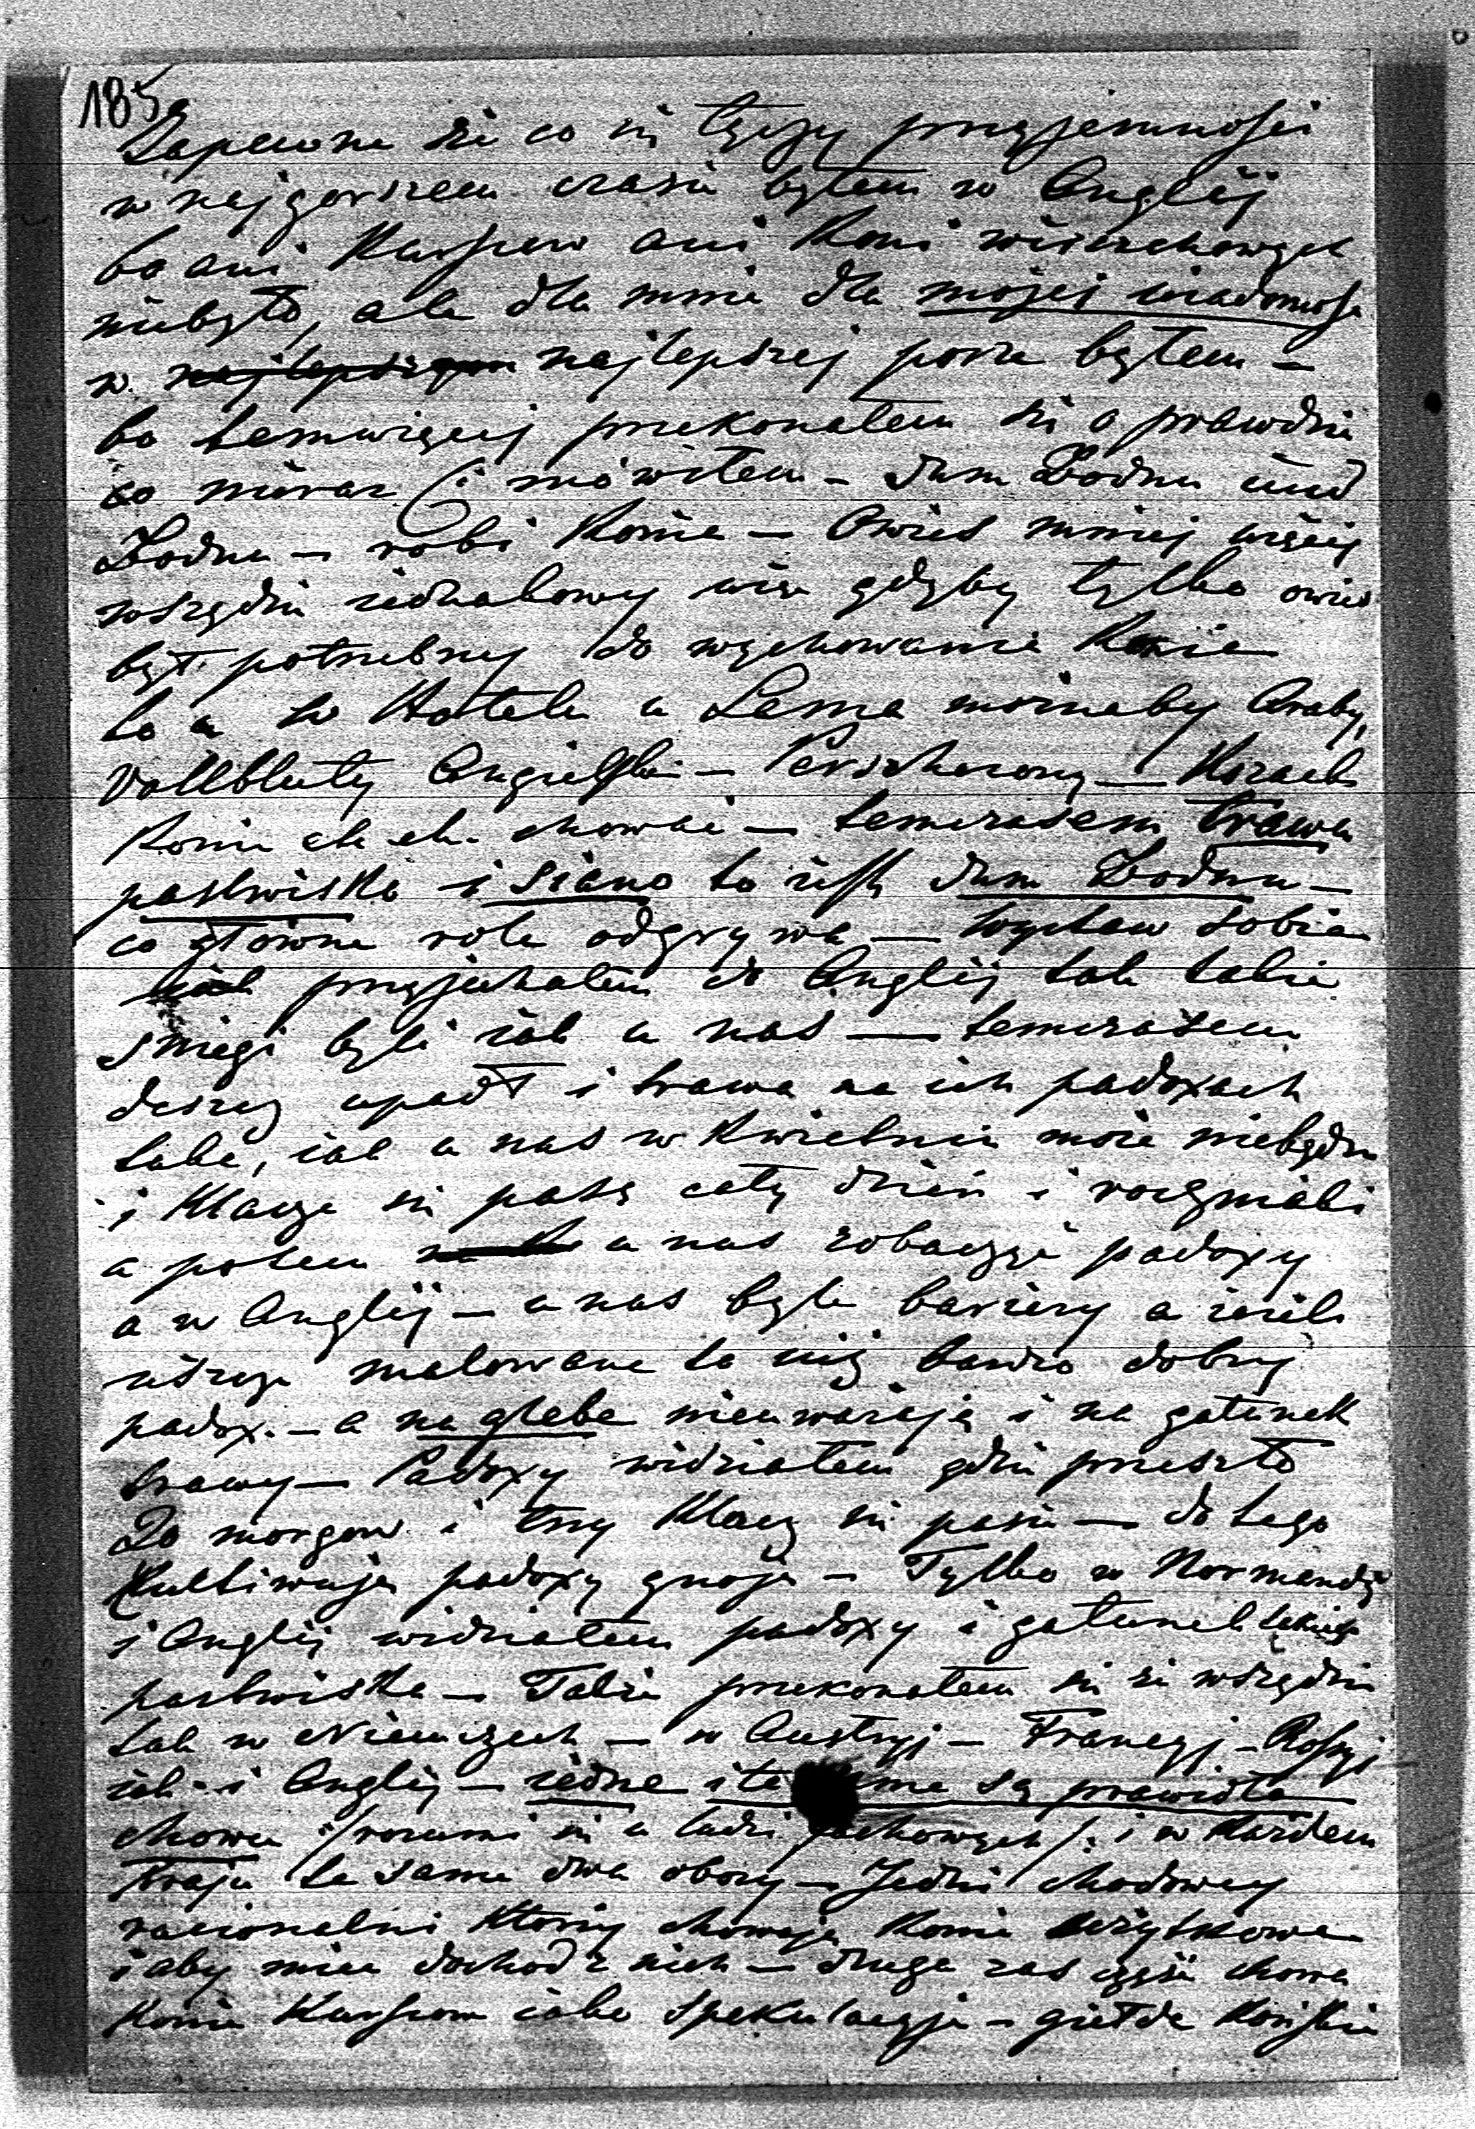 185
Zapewne że co się tyczy przyjemności
w najgorszem czasie byłem w Anglij
bo ani Kursuw ani Koni wierzchowych
niebyło, ale dla mnie dla mojej wiadomośc
w najlepszej porze byłem —
bo temwięcej przekonałem się o prawdzie
co nieraz mówiłem — dum Bodnu und
Bodnu — robi Konie — Owies mniej więcej
wszędzie iednakowy więc gdyby tylko owies
był potrzebny do wychowania Konie
to u w Hotelu u moznaby Araby,
Vollbluty Angielskie — Perszherony — Kozack
Konie etc etc. chować — temczasem trawa
pastwiska i siano to iest dum Bodnu —
co głowne role odgrywa — wystaw sobie
przyjechałem do Anglij tak takie
sniegi byli iak u nas — temczasem
deszcz upadł i trawa na ich padoxach
taka, iak u nas w Kwietniu moze niebędzie
i Klacze się pasą cały dzień i roczniaki
a potem u nas zobaczyć padoxy
a w Anglij — u nas byle bariery a ieźeli
ieszcze malowane to niż bardzo dobry
padox. — a na glebe nieuważają i na gatunek
trawy — Padoxy widziałem gdzie przeszło
20 morgow i trzy Klaczy się pasie — do tego
Kultiwują padoxy gnoją — Tylko w Normandji
i Anglij widziałem padoxy i gatunek takiego
pastwiska — Także przekonałem się że wszędzie
tak w Niemczech — w Austryj — Francyj — Rossyj
iak i Anglij — iedne i te same są prawidła
chowu /: rozumi się u ludzi fachowych /: i w Każdem
Kraju te same dwa obozy — Jedni chodowcy
racionalni ktorzy chowają Konie użytkowe
i aby mieć dochod z nich — druga zas część chowa
Konie Kursowe iako Spekulacyje — giełde Końskie